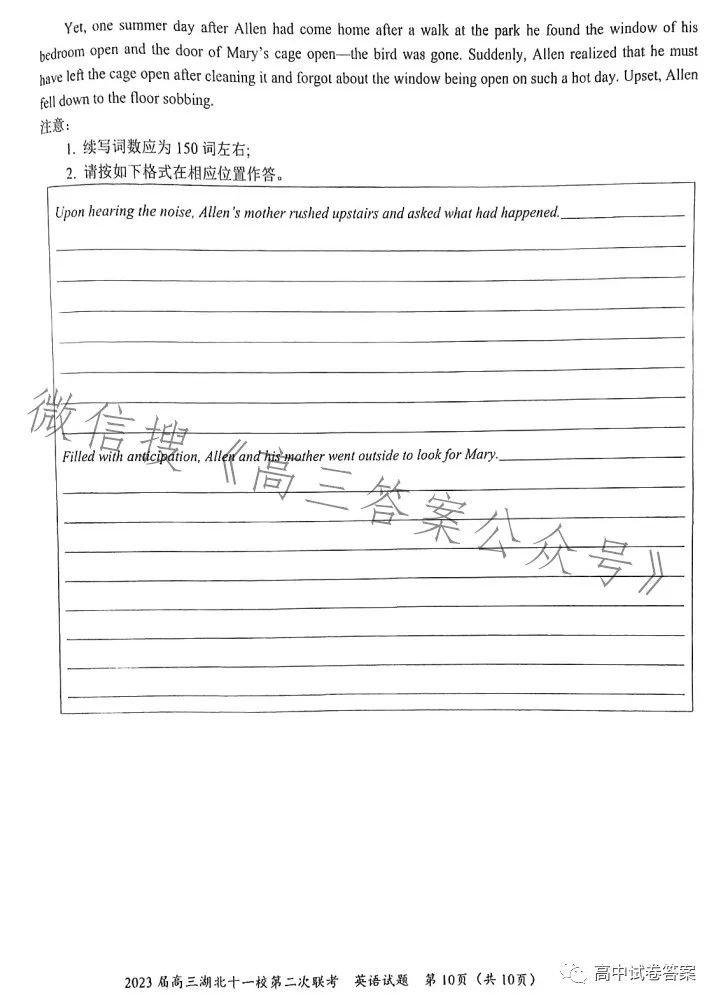 Yet, one summer day after Allen had come home after a walk at the park he found the window of his
bedroom open and the door of Mary's cage open—the bird was gone. Suddenly, Allen realized that he must
have left the cage open after cleaning it and forgot about the window being open on such a hot day. Upset, Allen
fell down to the floor sobbing.
注意：
1. 续写词数应为 150 词左右；
2. 请按如下格式在相应位置作答。
Upon hearing the noise, Allen's mother rushed upstairs and asked what had happened.
Filled with anticipation, Allen and his mother went outside to look for Mary.
微信搜《高三答案公众号》
2023 届高三湖北十一校第二次联考 英语试题 第10页（共 10页）
高中试卷答案